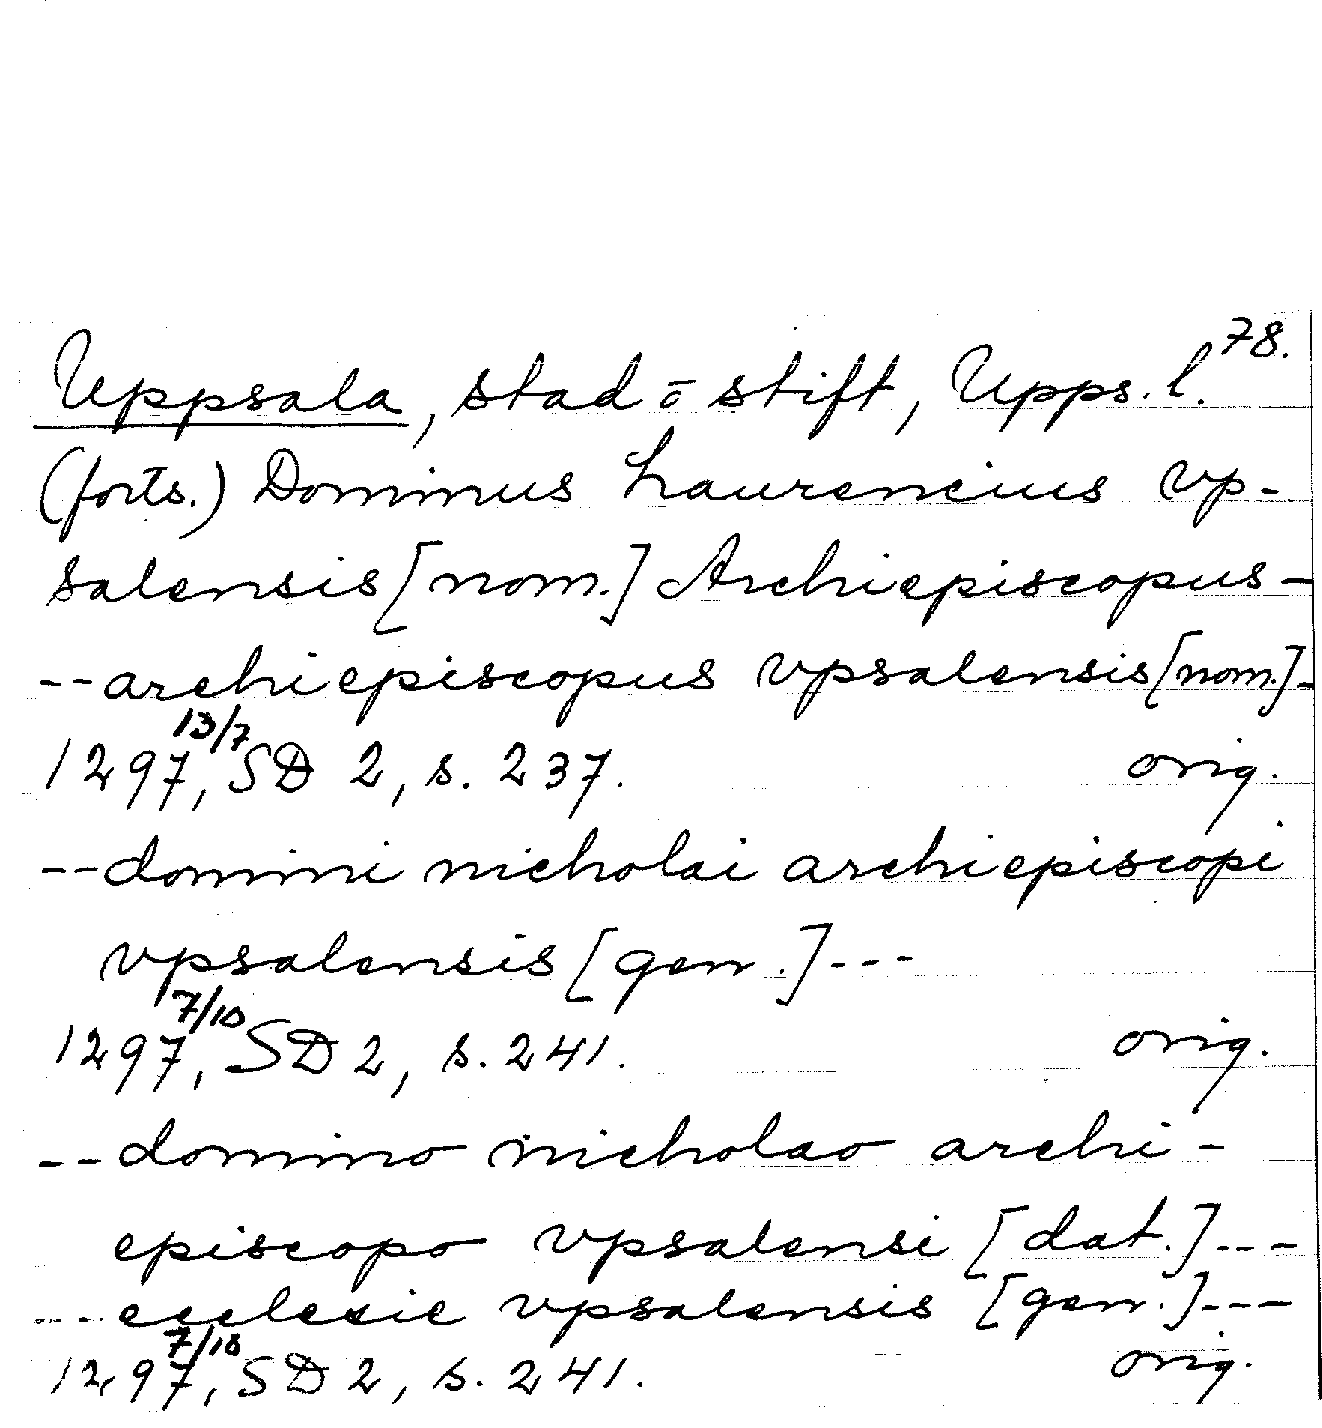 78.
Uppsala, stad o stift, Upps. l.
(forts.) Dominus Laurencius vp-
salensis [nom.] Archiepiscopus -
-- archiepiscopus vpsalensis [nom.] -
1297 13/7, SD 2, s. 237. orig.
-- domini nicholai archiepiscopi
vpsalensis [gen.] ---
1297 7/10, SD 2, s. 241. orig.
-- domino nicholao archi-
episcopo vpsalensi [dat.] ---
--- ecclesie vpsalensis [gen.] ---
1297 7/10, SD 2, s. 241. orig.